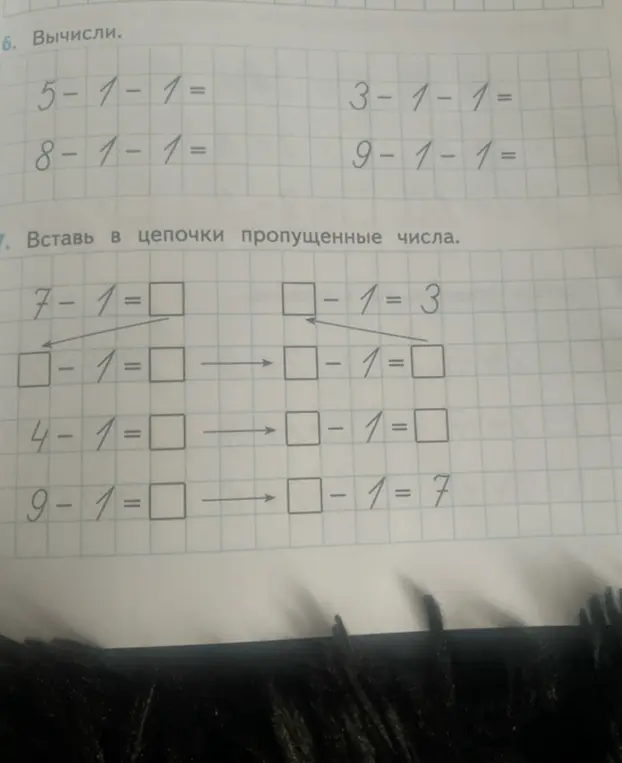 6. Вычисли.
5 - 1 - 1 = 3 - 1 - 1 =
8 - 1 - 1 = 9 - 1 - 1 =
7. Вставь в цепочки пропущенные числа.
7 - 1 = □ □ - 1 = 3
□ - 1 = □ → □ - 1 = □
4 - 1 = □ → □ - 1 = □
9 - 1 = □ → □ - 1 = 7